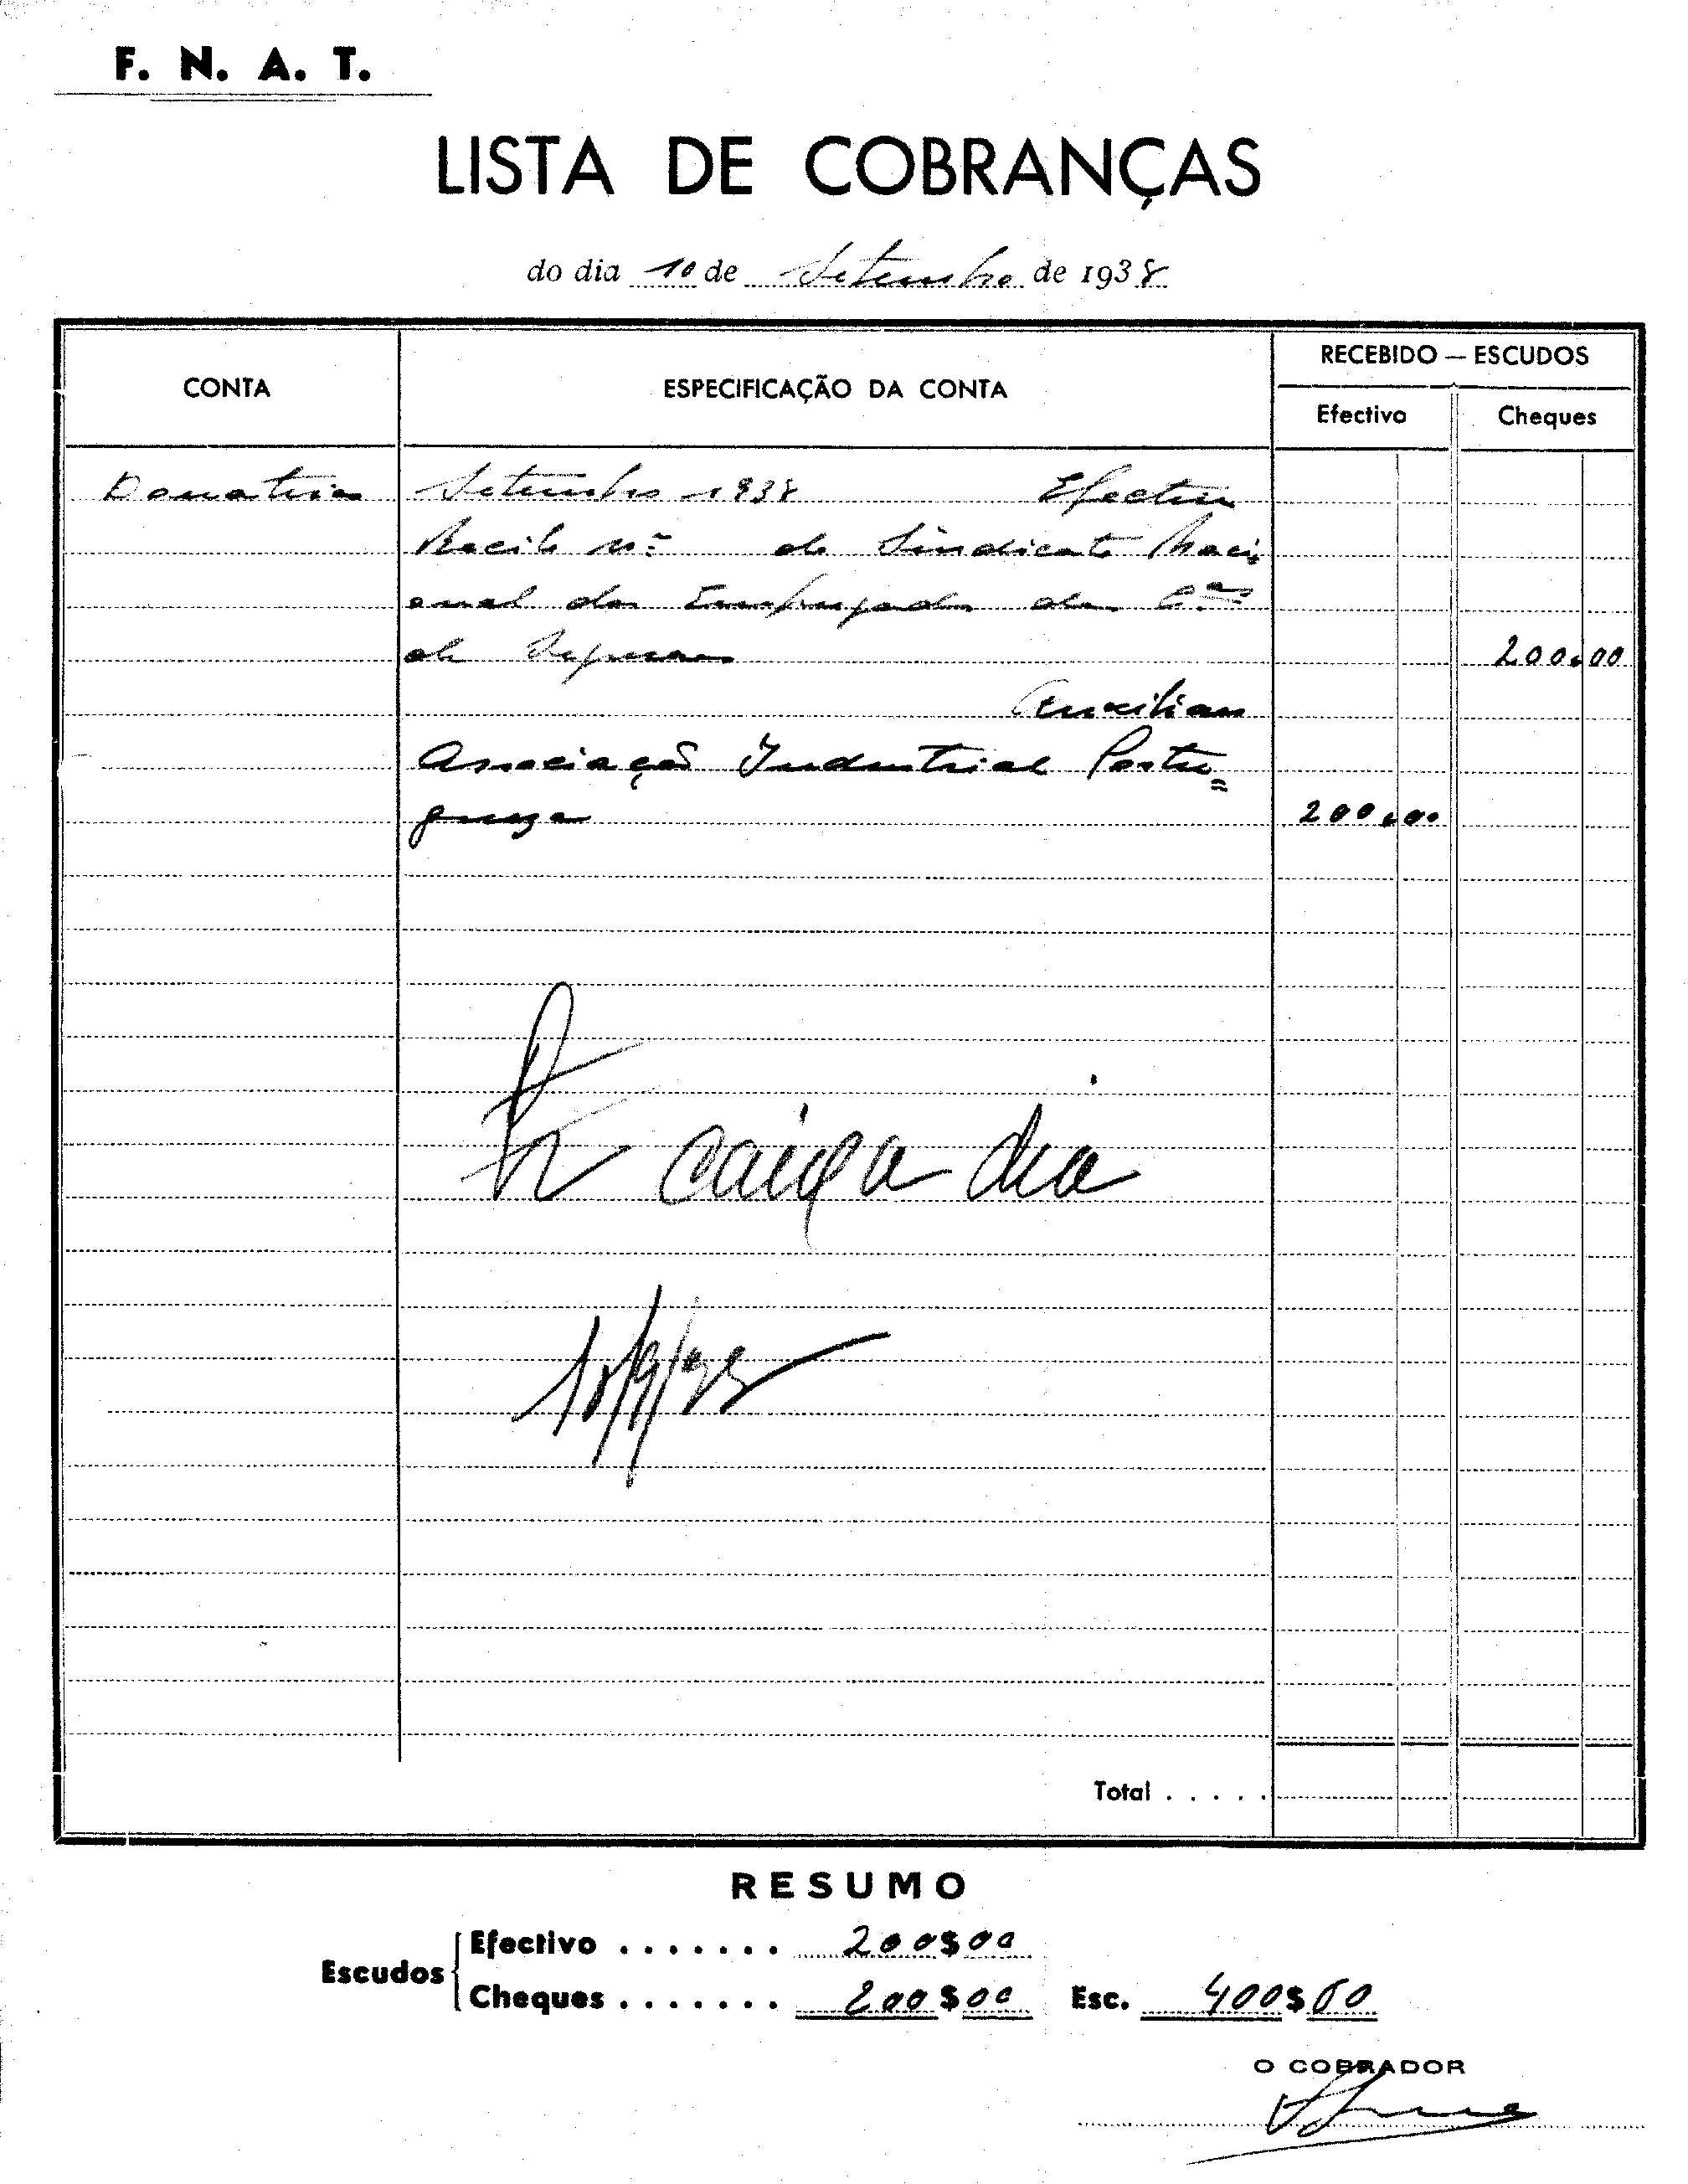 F. N. A. T.
LISTA DE COBRANÇAS
do dia 10 de Setembro de 1938
CONTA
ESPECIFICAÇÃO DA CONTA
RECEBIDO — ESCUDOS
Efectivo
Cheques
Donativos Setembro 1938 Efectivo
Recibo nº do Sindicato Naci
onal dos Empregados das C.as
de Seguros 200$00
Auxiliares
Associação Industrial Portu=
gueza 200$00
caixa dia
10/9/38
Total . . . . .
RESUMO
Escudos
Efectivo . . . . . . . 200$00
Cheques . . . . . . . 200$00 Esc. 400$00
O COBRADOR